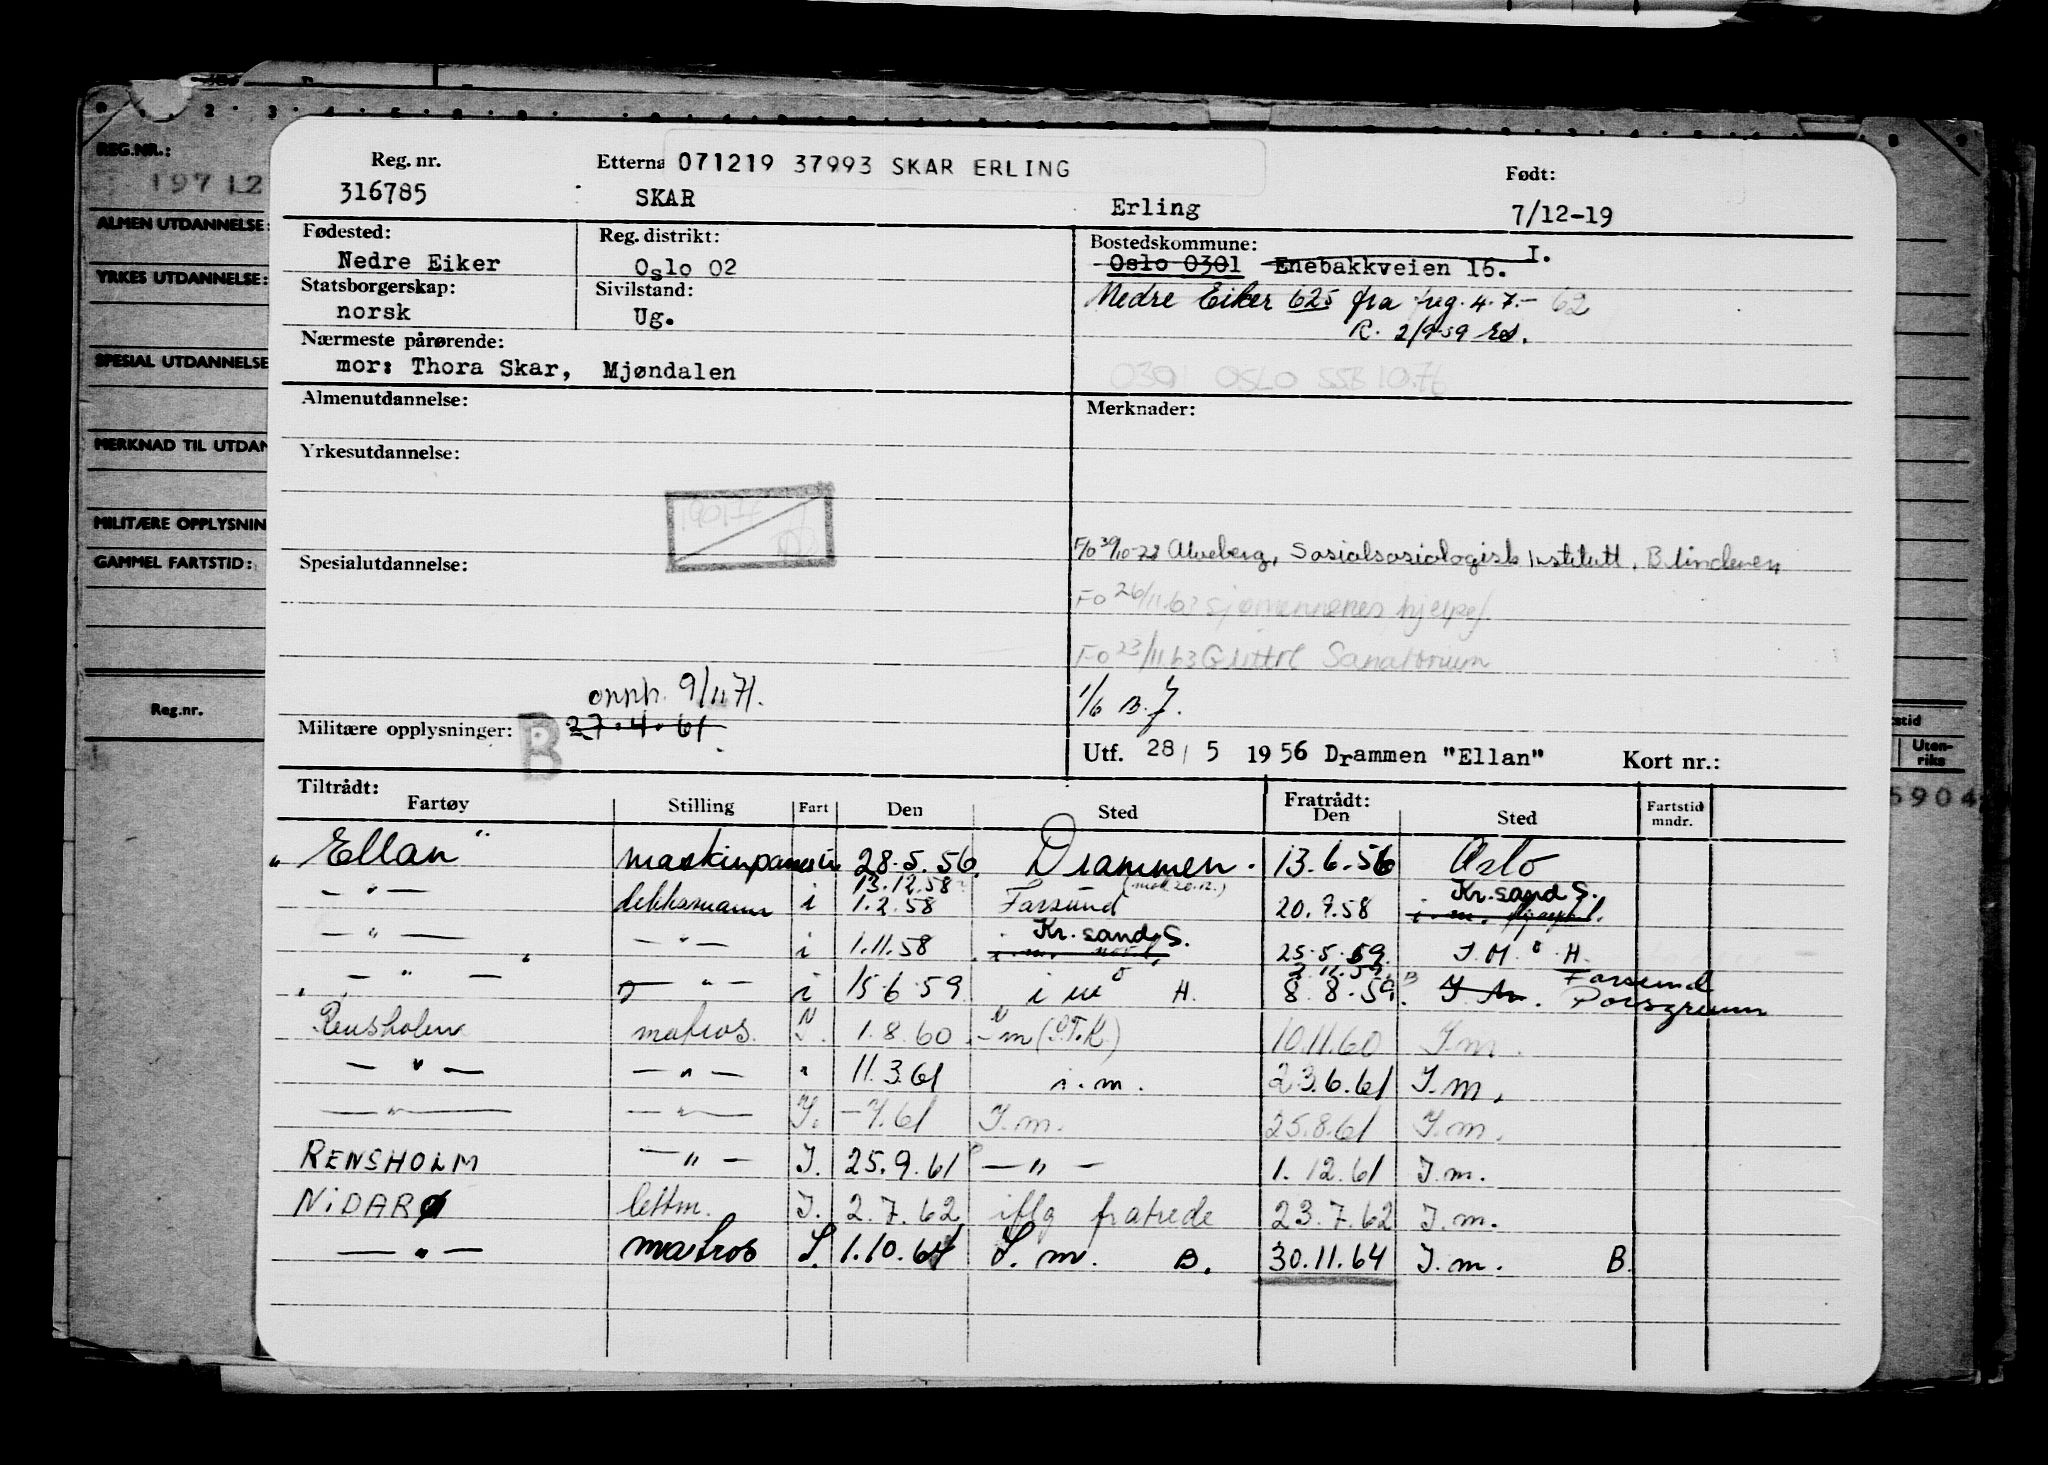 REG.NR.:
19712
ALMEN UTDANNELSE:
YRKES UTDANNELSE:
SPESIAL UTDANNELSE
MERKNAD TIL UTDAN
MILITÆRE OPPLYSNIN
GAMMEL FARTSTID:
Reg.nr.
Reg. nr. Etterna 071219 37993 SKAR ERLING Født:
316785 SKAR Erling 7/12-19
Fødested: Reg. distrikt: Bostedskommune: I.
Nedre Eiker Oslo 02 Oslo 0301 Enebakkveien 15.
Statsborgerskap: Sivilstand: Nedre Eiker 625 fra 4.7.- 62
norsk Ug. R. 2/9-59
Nærmeste pårørende:
mor: Thora Skar, Mjøndalen 0301 OSLO SSB 10.76
Almenutdannelse: Merknader:
Yrkesutdannelse:
Spesialutdannelse: F/o 30/10-73 Alveberg, Sosialsosiologisk Institutt, Blindern
Fo 26/11 63 sjømennenes hjelpef.
Fo 23/11 63 Glittre Sanatorium
opph. 9/11 71. 1/6 B.J.
Militære opplysninger: B 27.4.61
Utf. 28/5 1956 Drammen "Ellan" Kort nr.:
Tiltrådt: Fratrådt:
Fartøy Stilling Fart Den Sted Den Sted Fartstid mndr.
"Ellan" i 28.5.56. Drammen. 13.6.56 Oslo
13.12.58 Kr.sand S.
— " — dekksmann i 1.2.58 Farsund 20.9.58 i. m.
— " — — " — i 1.11.58 Kr. sand S. 25.5.59. I.M. H.
2.12.59 Farsund
— " — — " — i 15.6.59 i m H. 8.8.59. I. m. Porsgrunn
Rensholm matros. I. 1.8.60 I m (S.T.K.) 10.11.60 I.m.
— " — — " — " 11.3.61 i.m. 23.6.61 I.m.
— " — — " — I. -7.61 I.m. 25.8.61 I.m.
RENSHOLM — " — I. 25.9.61 — " — 1.12.61 I.m.
NIDARØ lettm. I. 2.7.62 iflg fratrede 23.7.62 I.m.
— " — matros I. 1.10.64 I.m. B. 30.11.64 I.m. B.
Uten-
riks
5904